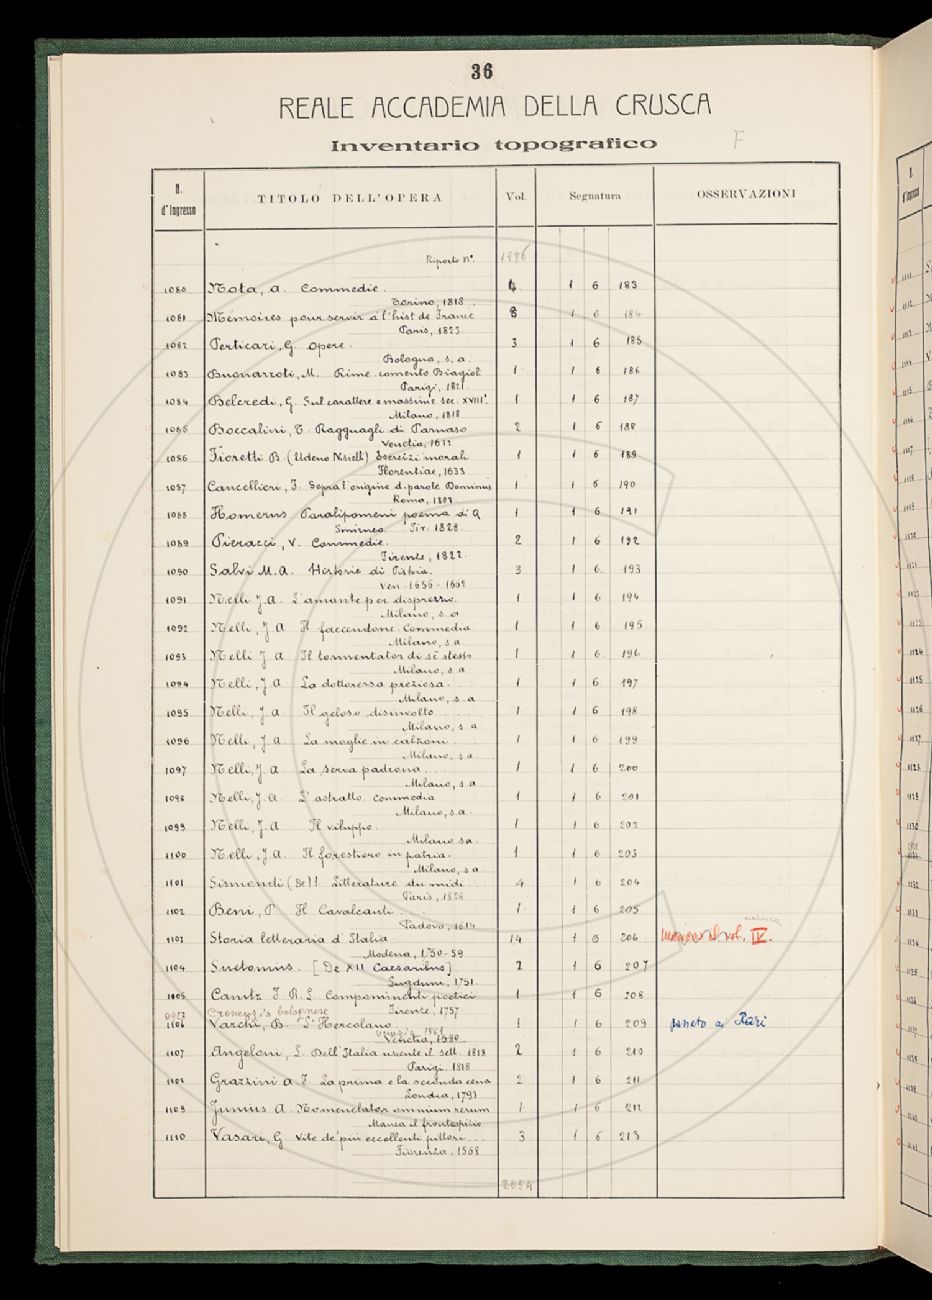 36
REALE ACCADEMIA DELLA CRUSCA
Inventario topografico
F
N. d'Ingresso TITOLO DELL'OPERA Vol. Segnatura OSSERVAZIONI
Riporto N°. 1996
1080 Nota, A. Commedie. 4 1 6 183
Torino, 1818.
1081 Mémoires pour servir à l'hist de France 8 1 6 184
Paris, 1823.
1082 Perticari, G. Opere. 3 1 6 185
Bologna, s. a.
1083 Buonarroti, M. Rime comento Biagioli 1 1 6 186
Parigi, 1821.
1084 Belcredi, G. Sul carattere e massime sec. XVIII°. 1 1 6 187
Milano, 1818
1085 Boccalini, T. Ragguagli di Parnaso 2 1 6 188
Venetia, 1612
1086 Fioretti B. (Udeno Nisielli) Esercizi morali 1 1 6 189
Florentiae, 1633
1087 Cancellieri, F. Sopra l'origine d. parole Dominus 1 1 6 190
Roma, 1808
1088 Homerus Paralipomeni poema di Q 1 1 6 191
Smirneo. Fir. 1828.
1089 Pieracci, V. Commedie. 2 1 6 192
Firenze, 1822.
1090 Salvi M. A. Historie di Pistoia. 3 1 6. 193
Ven. 1656 - 1662
1091 Nelli J. A. L'amante per disprezzo. 1 1 6 194
Milano, s. a
1092 Nelli, J. A Il faccendone Commedia 1 1 6 195
Milano, s. a
1093 Nelli J. A. Il tormentator di sè stesso 1 1 6. 196
Milano, s. a
1094 Nelli, J. A La dottoressa preziosa. . 1 1 6 197
Milano, s. a
1095 Nelli, J. A. Il geloso disinvolto . . . . 1 1 6 198
Milano, s. a
1096 Nelli, J. A. La moglie in calzoni . . . 1 1 6 199
Milano, s. a
1097 Nelli, J. A La serva padrona . . . 1 1 6 200
Milano, s. a.
1098 Nelli, J. A. L'astratto. Commedia 1 1 6 201
Milano, s. a.
1099 Nelli, J. A Il viluppo. 1 1 6. 202
Milano s. a.
1100 Nelli, J. A. Il forestiero in patria. 1 1 6 203
Milano, s. a
1101 Sismondi (De) S. Littérature du midi . . . 4 1 6 204
Paris, 1829
1102 Beni, P Il Cavalcanti . . 1. 1 6 205
Padova, 1614
1103 Storia letteraria d'Italia. 14 1 6 206. manca il vol. IV.
Modena, 1750-59
1104 Suetonius. [De XII Caesaribus] 2 1 6 207
Lugduni, 1751.
1105 Canitz F. R. L. Componimenti poetici 1 1 6 208
Firenze, 1757
1106 Varchi, B. L'Hercolano 1 1 6 209 passato ai Rari
Venetia, 1580
1107 Angeloni, L. Dell'Italia uscente il sett. 1818 2 1 6 210
Parigi. 1818
1108 Grazzini A. F. La prima e la seconda cena 2 1 6 211
Londra, 1793
1109 Junius A. Nomenclator omnium rerum 1 1 6 212
Manca il frontespizio
1110 Vasari, G Vite de' più eccellenti pittori . . . 3 1 6 213
Fiorenza, 1568
2054